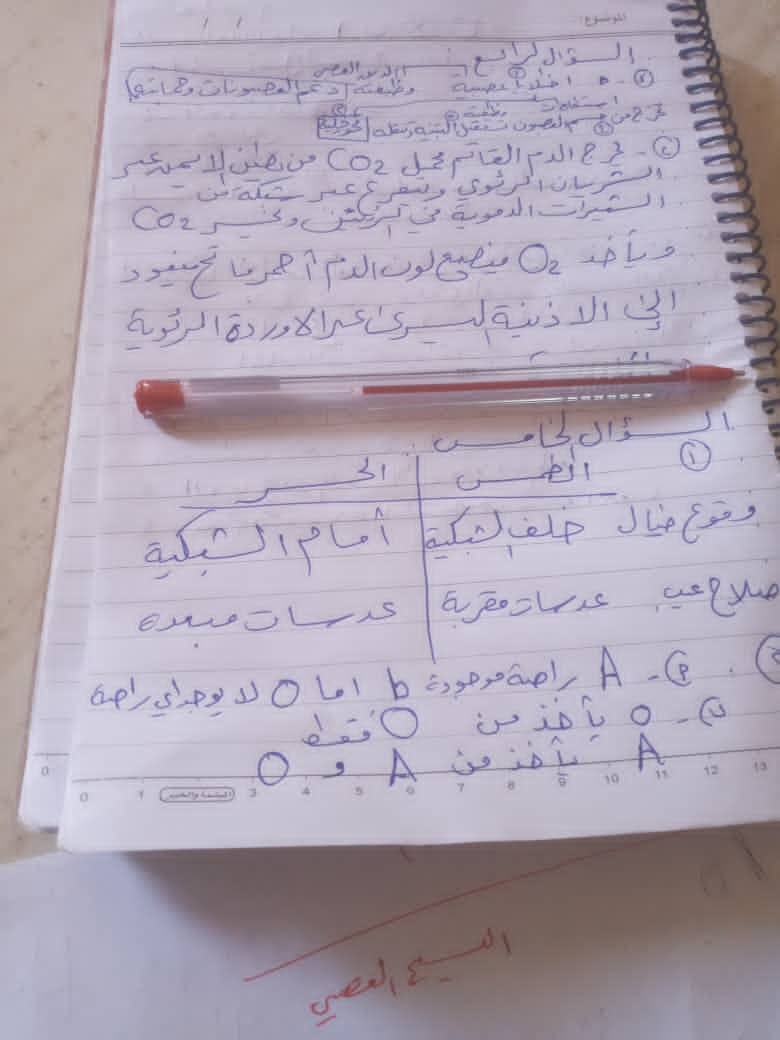 الموضوع:
/ /
السؤال الرابع
الدبق العصبي
وظيفته دعم العصبونات وحمايتها
استطالات وظيفته
تخرج من جسم العصبون تستقبل التنبيه وتنقله
ـ يخرج الدم القاتم محمل CO2 من بطين الايمن عبر
الشريان الرئوي ويتفرع عبر شبكة من
الشعيرات الدموية في الرئتين ويخسر CO2
ويأخذ O2 فيصبح لون الدم أحمر فاتح فيعود
إلى الاذينة اليسرى عبر الاوردة الرئوية
السؤال الخامس
①
الطمس الحسر
وقوع خيال خلف الشبكية أمام الشبكية
عدسات مقربة عدسات مبعدة
A راصة موجودة b اما O لا يوجد اي راصة
o يأخذ من O فقط
A يأخذ من A و O
0 0 1 3 4 5 6 7 8 9 10 11 12 13
النسيج العصبي